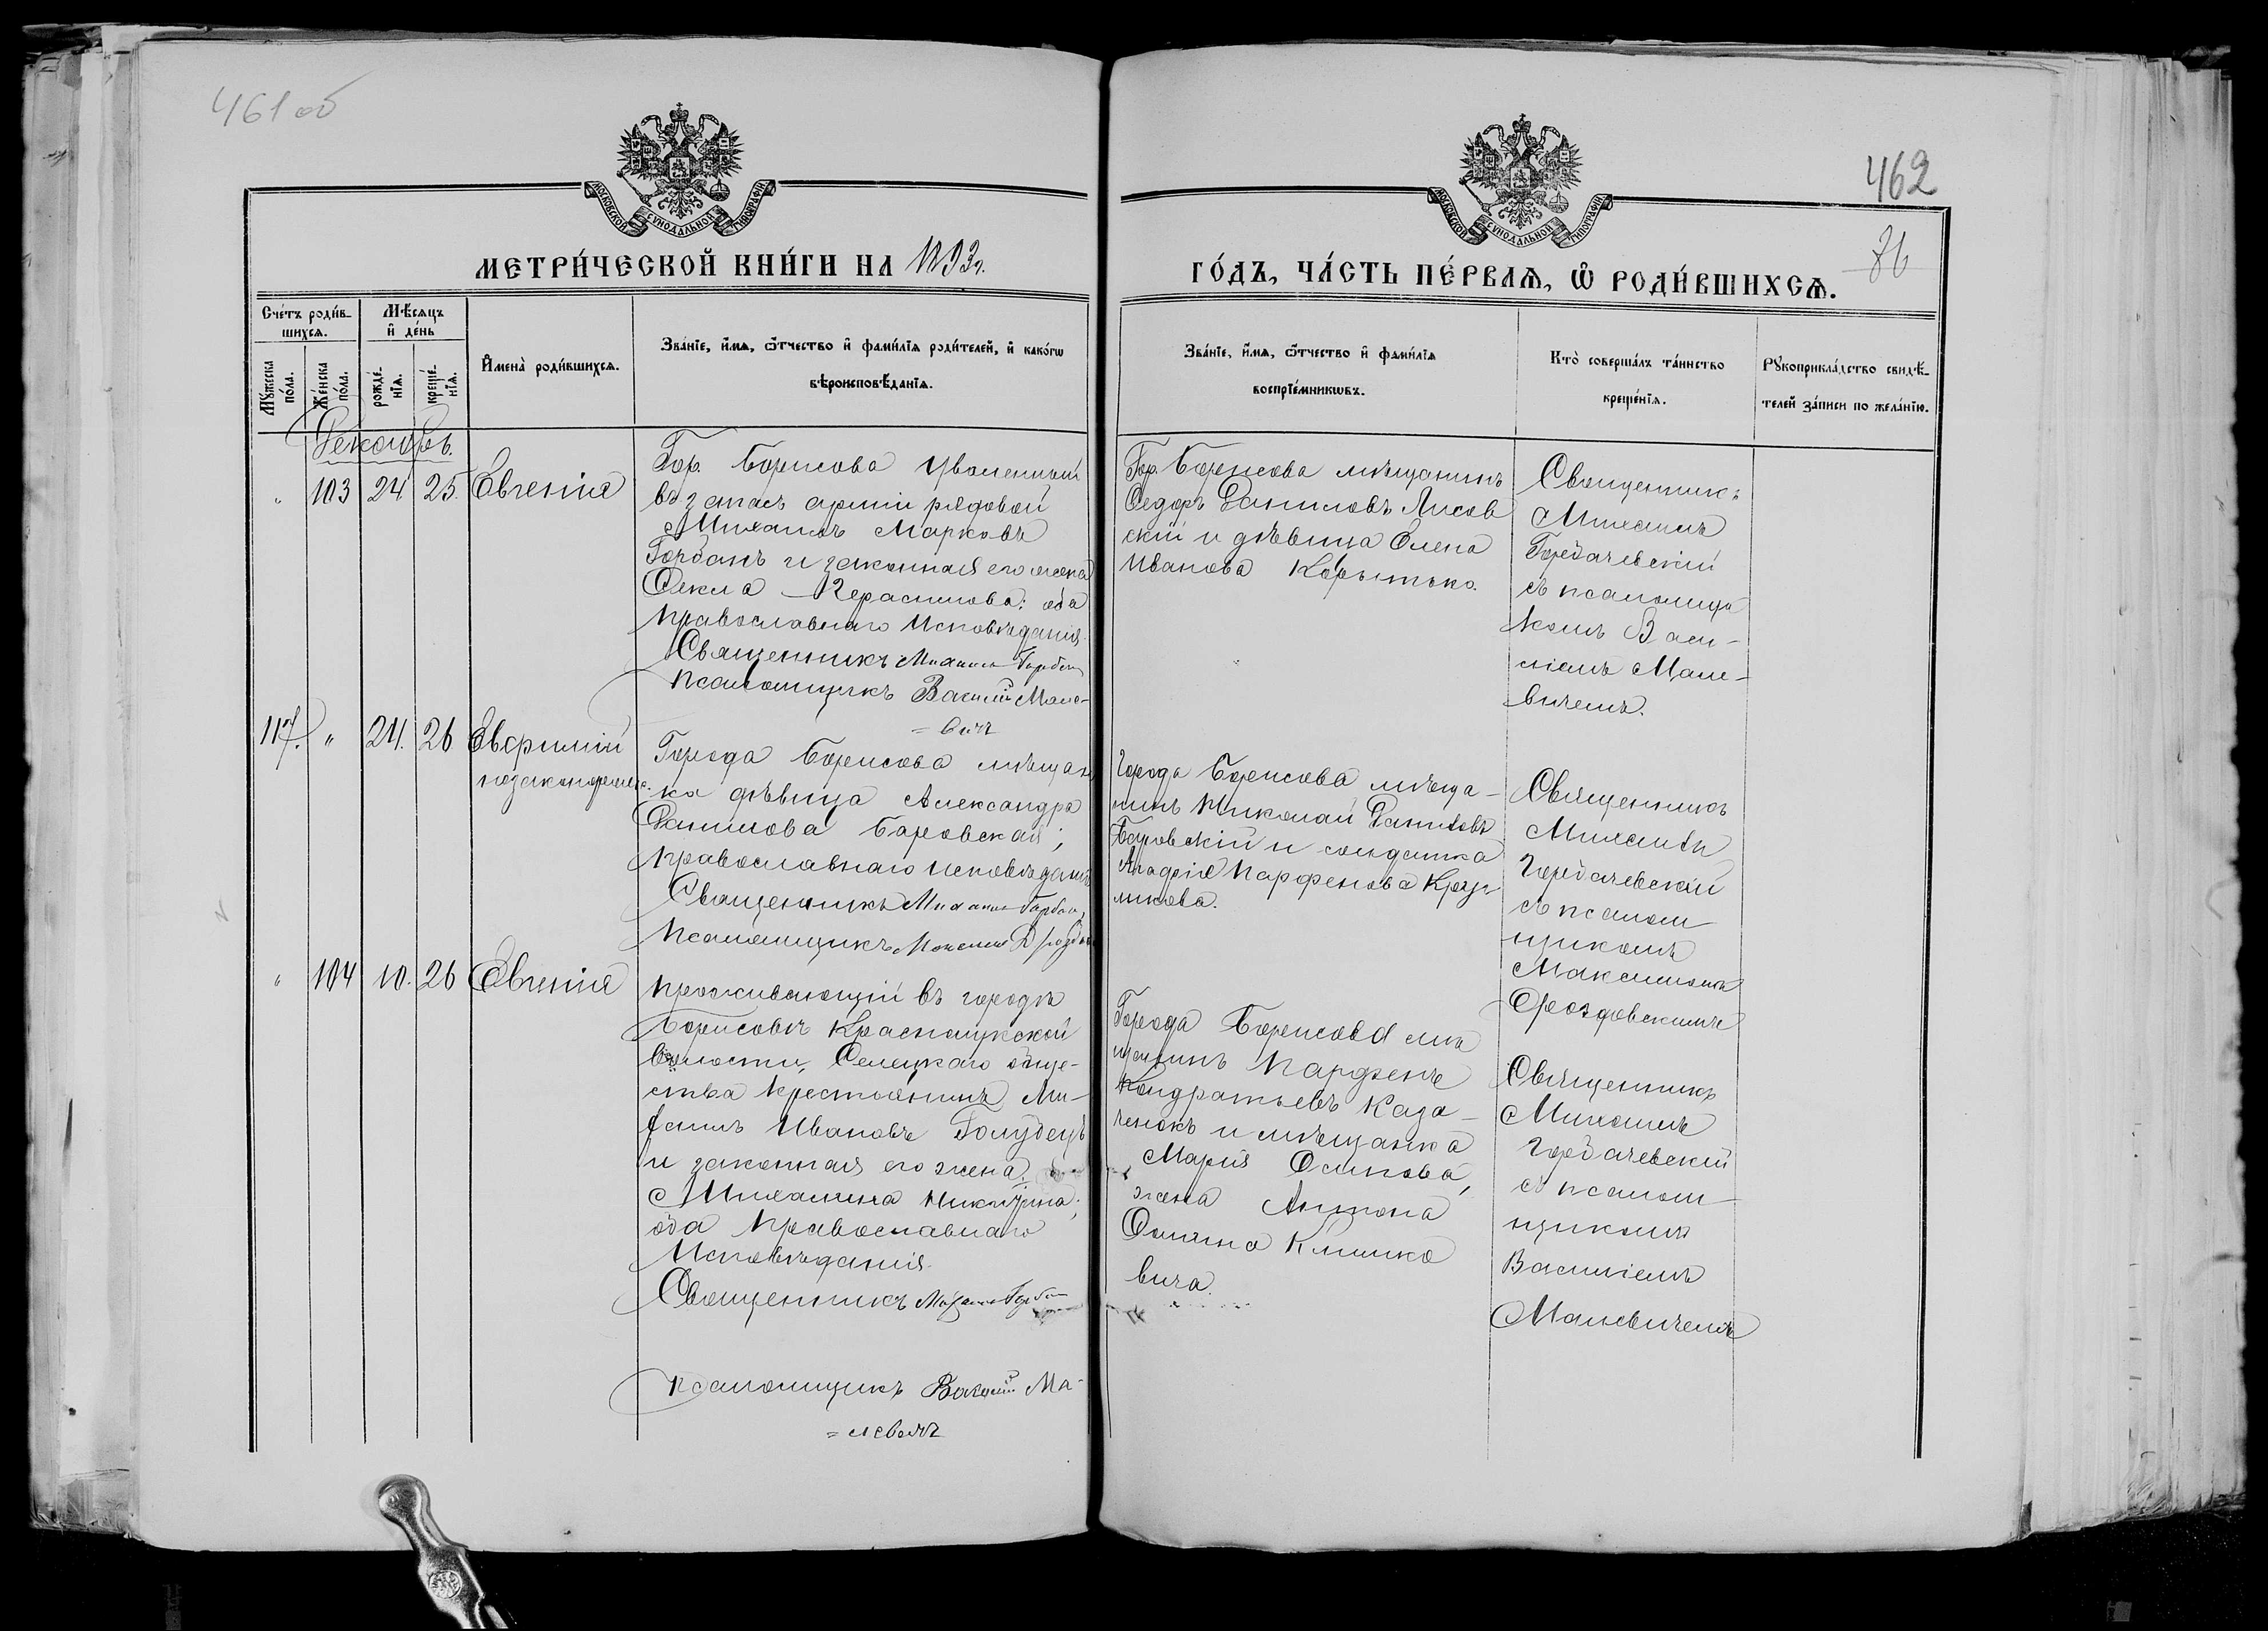 461 об
462
86
МОСКОВСКОЙ СѴНОДАЛЬНОЙ ТИПОГРАФІИ
МОСКОВСКОЙ СѴНОДАЛЬНОЙ ТИПОГРАФІИ
МЕТРИ́ЧЕСКОЙ КНИ́ГИ НА 1893 г.
ГО́ДЪ, ЧА́СТЬ ПЕ́РВАѦ, Ѡ҆ РОДИ́ВШИХСѦ.
Сче́тъ роди́в-
шихсѧ.
Мѣ́сѧцъ
и҆ де́нь
Мꙋ́жеска
по́ла.
Же́нска
по́ла.
рожде́-
нїѧ.
креще́-
нїѧ.
И҆мена̀ роди́вшихсѧ.
Зва́нїе, и҆́мѧ, ѻ҆́тчество и҆ фами́лїѧ роди́телей, и҆ како́гѡ
вѣроисповѣ́данїѧ.
Зва́нїе, и҆́мѧ, ѻ҆́тчество и҆ фами́лїѧ
воспрїе́мникѡвъ.
Кто̀ соверша́лъ та́инство
креще́нїѧ.
Рꙋкоприкла́дство свидѣ́-
телей за́писи по жела́нїю.
Декабрь.
" 103 24 25. Евгенія
Гор. Борисова уволенный
въ запасъ арміи рядовой
Михаилъ Марковъ
Горбачъ и законная его жена
Фекла Герасимова; оба
православнаго исповѣданія.
Священникъ Михаилъ Горбач
Псаломщикъ Василій Мале-
=вичъ
Гор. Борисова мѣщанинъ
Федоръ Даниловъ Лисов
скій и дѣвица Елена
Иванова Корытько.
Священникъ
Михаилъ
Горбачевскій
съ псаломщи
комъ Васи-
ліемъ Мале-
вичемъ.
117. " 24. 26 Евфимій
незаконорожд.
Города Борисова мѣщан
ка дѣвица Александра
Данилова Баровская;
православнаго исповѣданія
Священникъ Михаилъ Горбач
Псаломщикъ Максимъ Дрозд
Города Борисова мѣща-
нинъ Николай Даниловъ
Баровскій и солдатка
Парфенова
ликова.
Священникъ
Михаилъ
Горбачевскій
съ псалом
щикомъ
Максимомъ
Дроздовскимъ
" 104 10. 26 Евгенія
Проживающій въ городѣ
Борисовѣ Краснолукской
волости, Селецкаго обще-
ства крестьянинъ Ми-
хаилъ Ивановъ Голубецъ
и законная его жена
Михалина
оба Православнаго
Исповѣданія.
Священникъ Михаилъ Горбач
Псаломщикъ Василій Ма-
=левичъ
Города Борисова мѣ
щанинъ Парфенъ
Кондратьевъ Каза-
ченокъ и мѣщанка
Марія Осипова,
жена Антона
Осипова Климко
вича.
Священникъ
Михаилъ
Горбачевскій
съ псалом-
щикомъ
Василіемъ
Малевичемъ